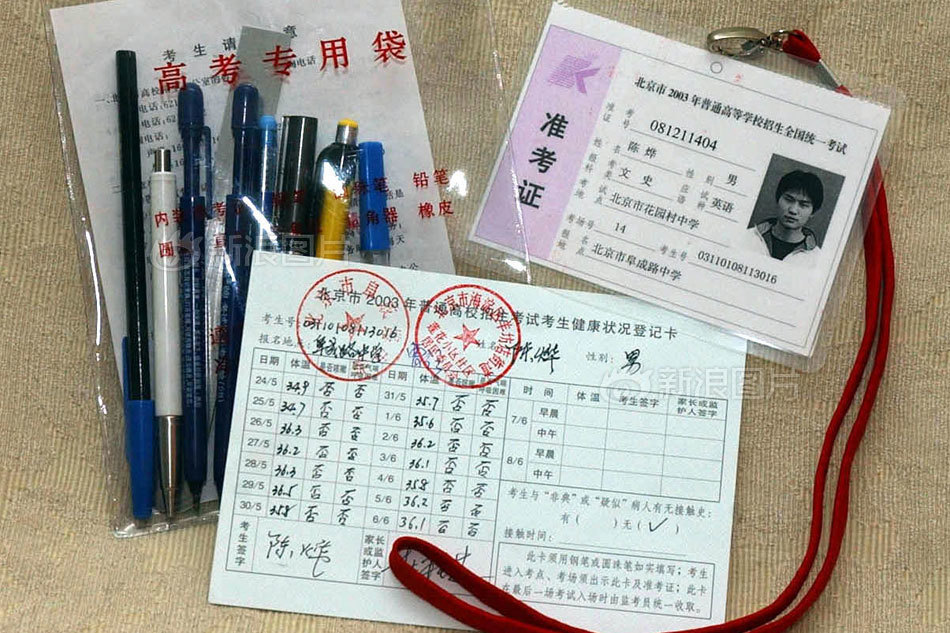 考生请 意
高考专用袋
铅笔
橡皮
准考证
北京市2003年普通高等学校招生全国统一考试
准考证号 081211404
姓名 陈烨 性别 男
报考科类 文史 应试语种 英语
考试地点 北京市花园村中学
考场号 14 考生号 03110108113016
报名地点 北京市阜成路中学
北京市2003年普通高校招生考试考生健康状况登记卡
考生号: 03110108113016 姓名 陈烨 性别: 男
报名地: 阜成路中学
日期 体温 是否咳嗽 日期 体温 是否咳嗽 呼吸困难
24/5 34.9 否 否 31/5 35.7 否 否
25/5 34.7 否 否 1/6 35.6 否 否
26/5 36.3 否 否 2/6 36.2 否 否
27/5 36.2 否 否 3/6 36.1 否 否
28/5 36.3 否 否 4/6 35.8 否 否
29/5 36.5 否 否 5/6 36.2 否 否
30/5 35.8 否 否 6/6 36.1 否 否
考生签字 陈烨 家长或监护人签字
时间 体温 考生签字 家长或监护人签字
7/6 早晨
中午
8/6 早晨
中午
考生与“非典”或“疑似”病人有无接触史:
有( )无(✓)
接触时间:
此卡须用钢笔或圆珠笔如实填写；考生
进入考点、考场须出示此卡及准考证；此卡
在最后一场考试入场时由监考员统一收取。
新浪图片
新浪图片